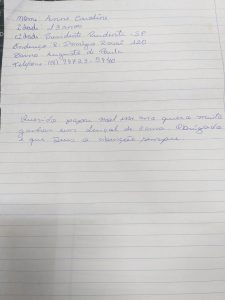 Nome: Anna Caroline
Idade: 13 anos
Cidade: Presidente Prudente - SP
Endereço: R:
Bairro Augusto de Paula
Telefone:
Querido papai noel esse ano queria muito
ganhar um lençol de cama. Obrigada
e que Deus o abençoe sempre.